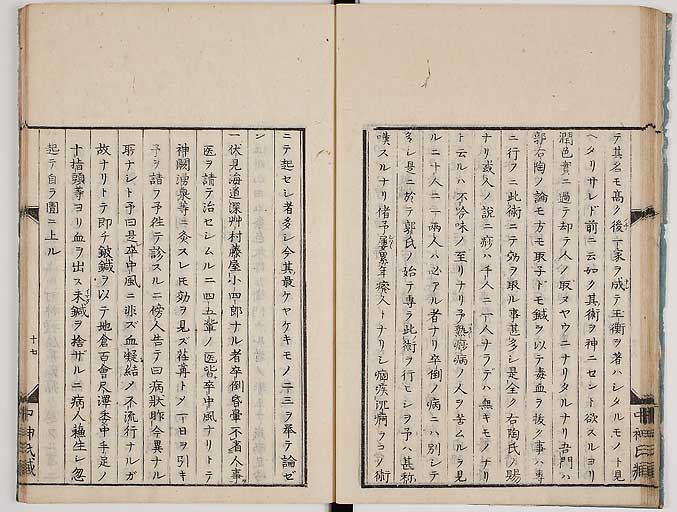 テ其名モ高ク後一家ヲ成テ玉衡ヲ著ハシタルモノト見
ヘタリサレド前ニ云如ク其術ヲ神ニセント欲スルヨリ
潤色實ニ過テ却テ人ノ取ヌヤウニナリタルナリ吾門ハ
郭右陶ノ論モ方モ取子ドモ鍼ヲ以テ毒血ヲ抜ク事ハ專
ニ行フニ此術ニテ効ヲ取ル事甚多シ是全ク右陶氏ノ賜
ナリ或人ノ說ニ痧ハ千人ニ一人ナラデハ無キモノナリ
ト云ルハ不吟味ノ至リナリ予熟痧病ノ人ヲ苦ムルヲ見
ルニ十人ニ一兩人ハ必アル者ナリ卒倒ノ病ニハ別シテ
多シ是ニ於テ郭氏ノ始テ專ラ此術ヲ行セシヲ予ハ甚称
嘆スルナリ偖予屢累年療人トナリシ痼疾沉痾ヲコノ術
ニテ起セシ者多シ今其最ケヤケキモノ二三ヲ舉テ論ゼ
ン
一伏見海道深艸村藤屋小四郎ナル者卒倒昏暈不省人事
医ヲ請テ治セシムルニ四五輩ノ医皆卒中風ナリトテ
神闕湧泉等ニ灸スレ𪜈効ヲ見ズ荏苒トノ一日ヲ引キ
予ヲ請フ予徃テ診スルニ傍人告テ曰病狀昨今異ナル
叓ナシト予曰是卒中風ニ非ズ血凝結ノ不流行ナルガ
故ナリトテ即チ鈹鍼ヲ以テ地倉百會尺澤委中手足ノ
十指頭等ヨリ血ヲ出ス未鍼ヲ捨ザルニ病人穐生シ忽
起テ自ラ圊ニ上ル
十七
中神氏藏
中神氏藏